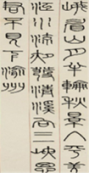 峨眉山月半輪秋景入平羌
江水流夜發清溪向三峽思
君不見下渝州